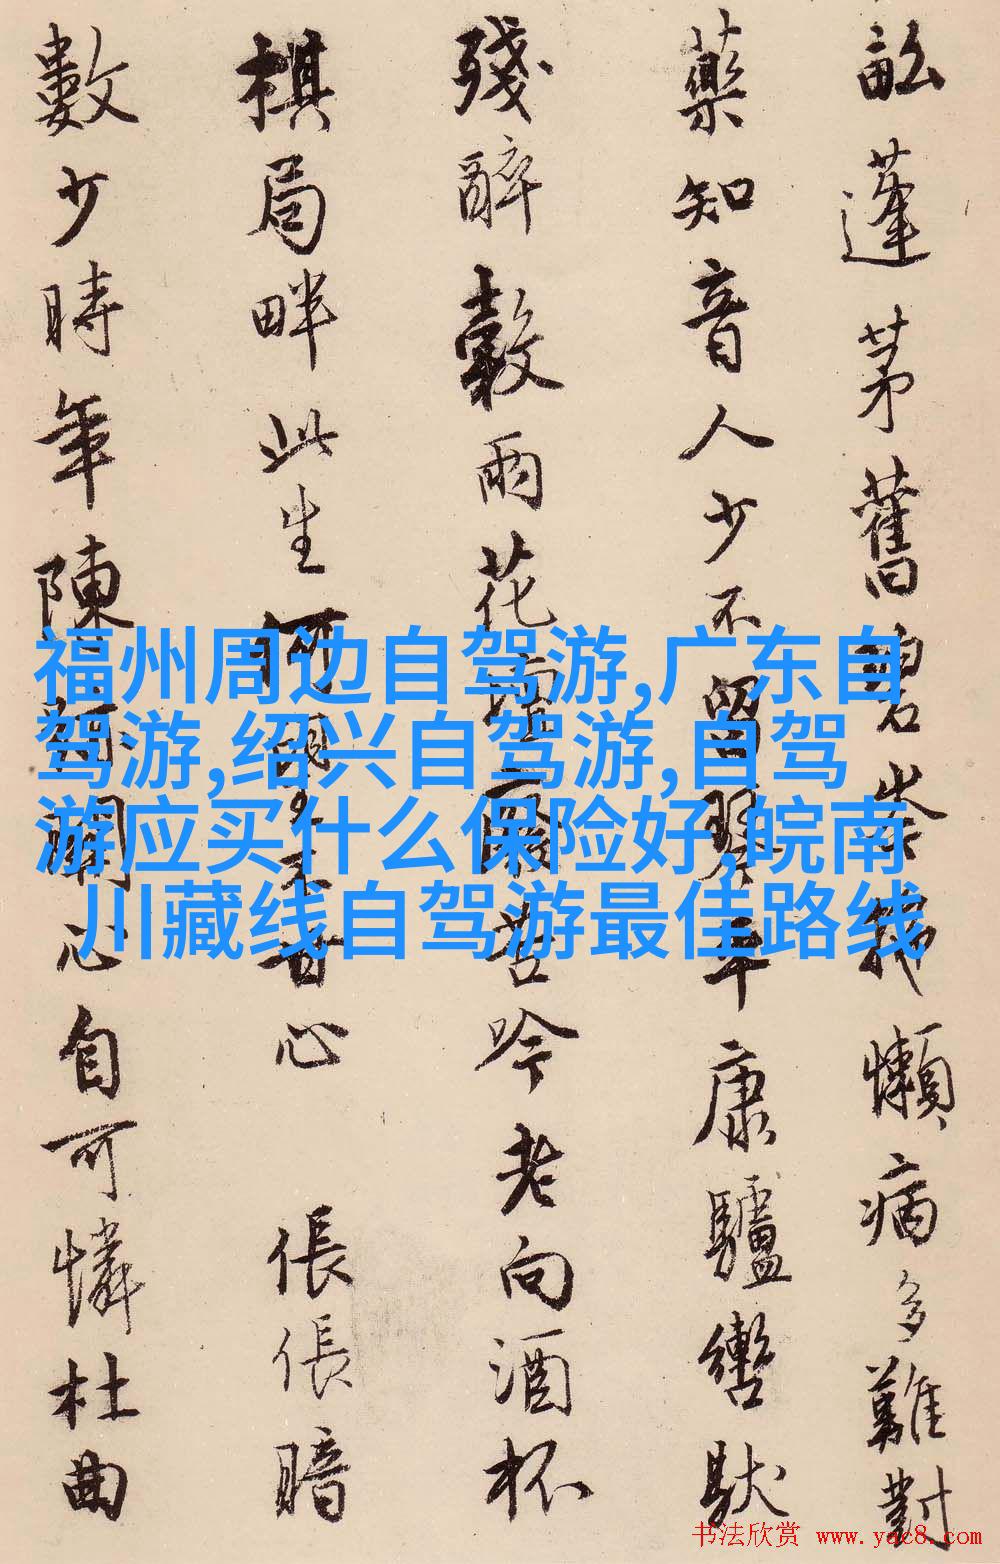 畝蓬茅舊碧岑懶病多難對
藥知音人少不留年康驢轡馱
殘醉穀雨花苦吟老向酒杯
棋局畔此生何心 悵悵暗
數少時年陳心自可憐杜曲
福州周边自驾游,广东自
驾游,绍兴自驾游,自驾
游应买什么保险好,皖南
川藏线自驾游最佳路线
书法欣赏 www.yac8.com